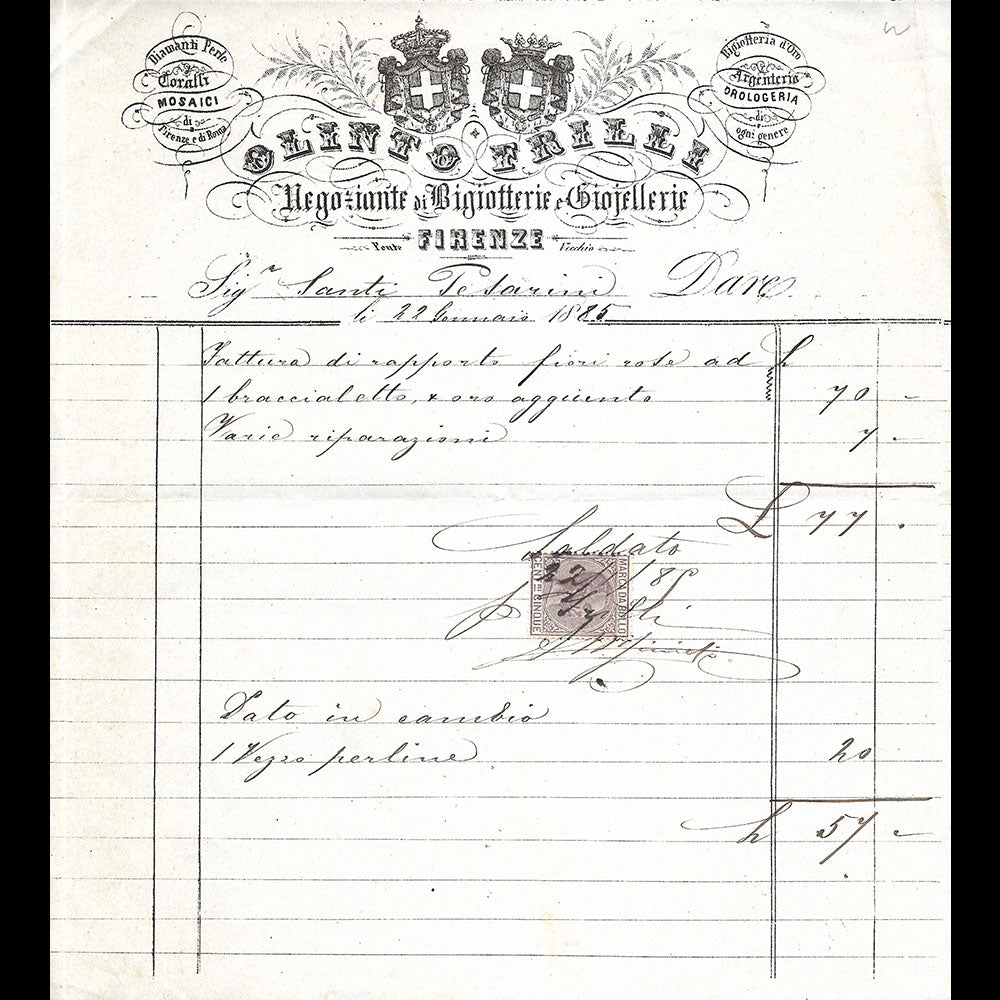 Diamanti Perle
Coralli
MOSAICI
di
Firenze e di Roma
Bigiotteria d'Oro
Argenteria
OROLOGERIA
di
ogni genere
OLINTO FRILLI
Negoziante di Bigiotterie e Giojellerie
FIRENZE
Ponte Vecchio
Sigr Santi Pesarini Dare
li 22 Gennaio 1885
Fattura di rapporto fiori rose ad £
1 braccialetto, e oro aggiunto 70 -
Varie riparazioni 7 -
£ 77 .
Saldato
22/1/85
CENTmi CINQUE
MARCA DA BOLLO
Dato in cambio
1 Vezzo perline 20
£ 57 -